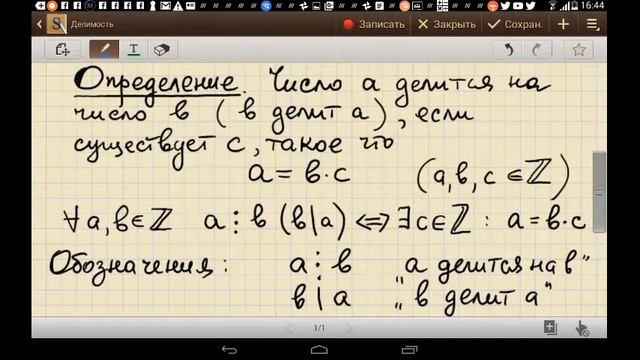 16:44
Делимость
Записать
Закрыть
Сохран.
Определение. Число a делится на
число b (b делит a), если
существует c, такое что
a = b·c (a, b, c ∈ ℤ)
∀ a, b ∈ ℤ a ⋮ b (b | a) ⟺ ∃ c ∈ ℤ : a = b·c
Обозначения: a ⋮ b „a делится на b"
b | a „b делит a"
1/1